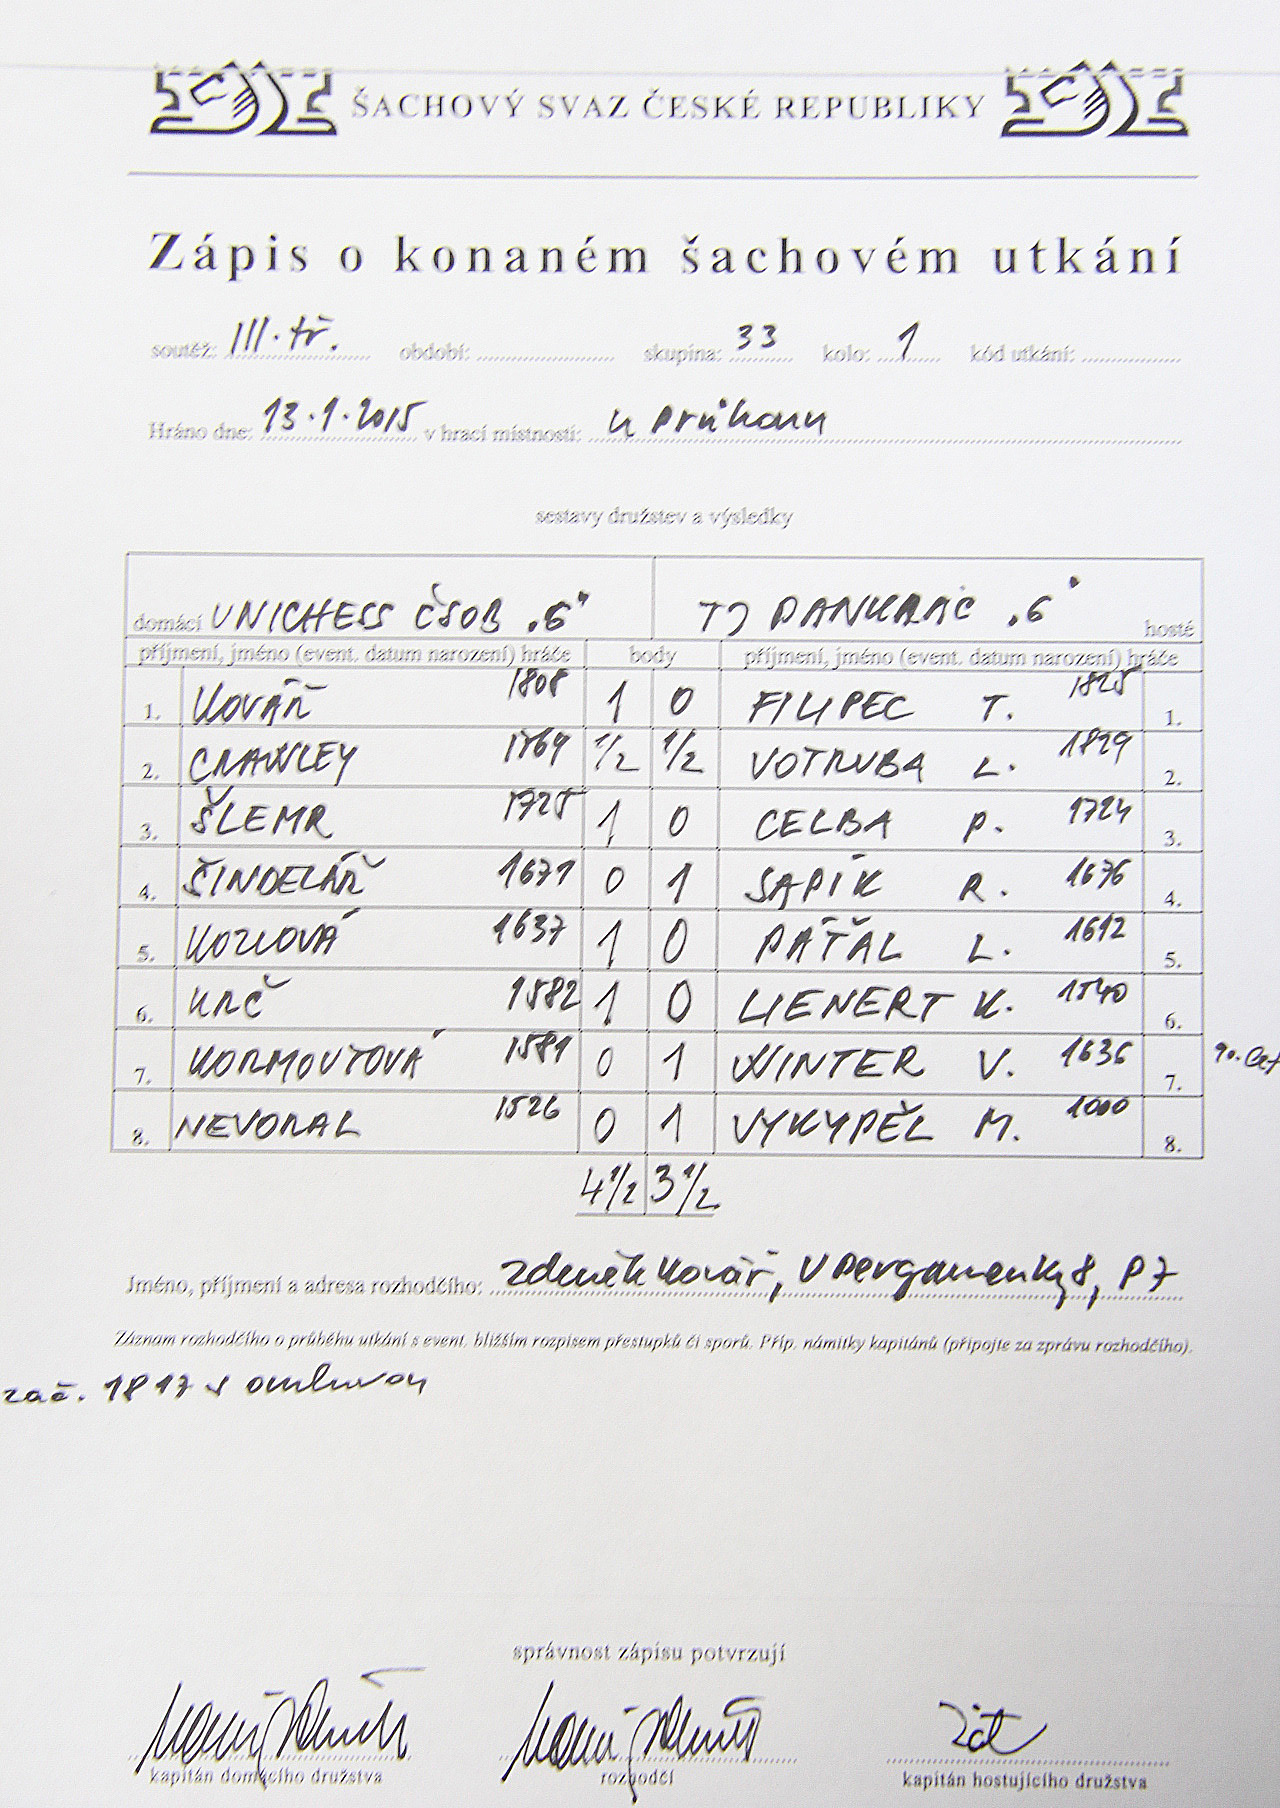 ŠACHOVÝ SVAZ ČESKÉ REPUBLIKY
Zápis o konaném šachovém utkání
soutěž: III. tř. období: skupina: 33 kolo: 1 kód utkání:
Hráno dne: 13.1.2015 v hrací místnosti: U Průhonu
sestavy družstev a výsledky
domácí UNICHESS ČSOB "6" TJ PANKRÁC "6" hosté
příjmení, jméno (event. datum narození) hráče body příjmení, jméno (event. datum narození) hráče
1. KOVÁŘ 1808 1 0 FILIPEC T. 1825 1.
2. CRAWLEY 1769 1/2 1/2 VOTRUBA L. 1829 2.
3. ŠLEMR 1725 1 0 CELBA P. 1724 3.
4. ŠINDELÁŘ 1671 0 1 SAPÍK R. 1676 4.
5. KOZLOVÁ 1637 1 0 PÁŤAL L. 1612 5.
6. KRČ 1582 1 0 LIENERT K. 1540 6.
7. KORMOUTOVÁ 1581 0 1 WINTER V. 1636 7.
8. NEVORAL 1526 0 1 VYKYPĚL M. 1000 8.
4 1/2 3 1/2
Jméno, příjmení a adresa rozhodčího: Zdeněk Kovář, V Pergamenky 8, P7
Záznam rozhodčího o průběhu utkání s event. bližším rozpisem přestupků či sporů. Příp. námitky kapitánů (připojte za zprávu rozhodčího).
zač. 1817 s omluvou
správnost zápisu potvrzují
kapitán domácího družstva rozhodčí kapitán hostujícího družstva